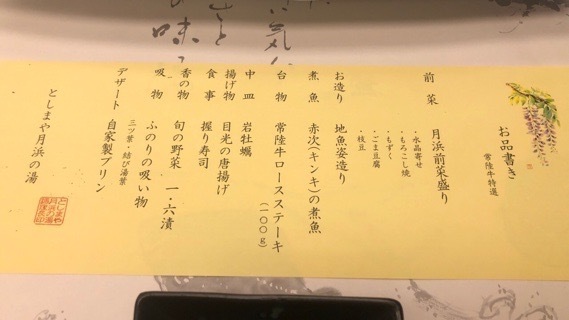 お品書き
常陸牛特選
前菜 月浜前菜盛り
・水晶寄せ
・もろこし焼
・もずく
・ごま豆腐
・枝豆
お造り 地魚姿造り
煮魚 赤次(キンキ)の煮魚
台物 常陸牛ロースステーキ
(一〇〇g)
中皿 岩牡蠣
揚げ物 目光の唐揚げ
食事 握り寿司
香の物 旬の野菜 一・六漬
吸物 ふのりの吸い物
三ツ葉・結び湯葉
デザート 自家製プリン
としまや月浜の湯